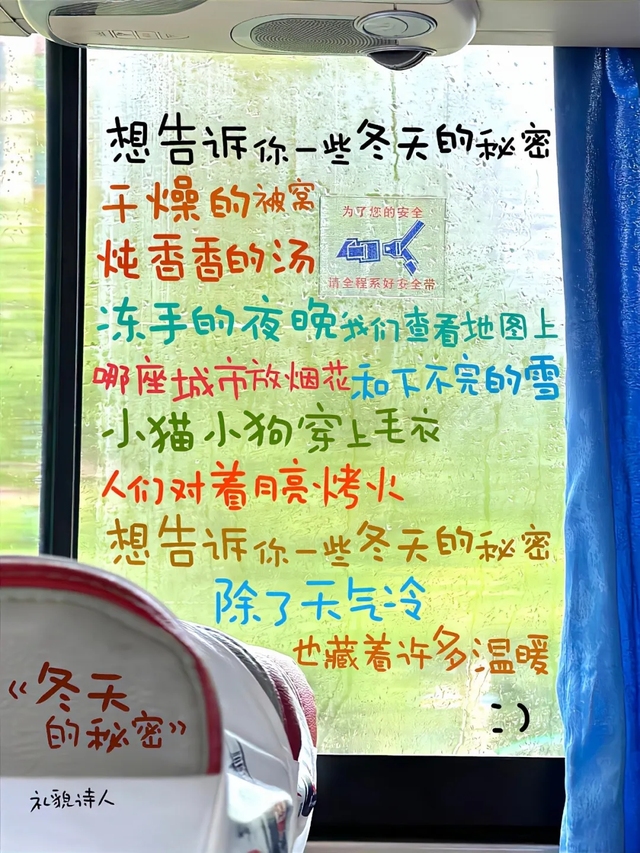 想告诉你一些冬天的秘密
干燥的被窝
炖香香的汤
为了您的安全
请全程系好安全带
冻手的夜晚我们查看地图上
哪座城市放烟花和下不完的雪
小猫小狗穿上毛衣
人们对着月亮烤火
想告诉你一些冬天的秘密
除了天气冷
也藏着许多温暖
:)
《冬天
的秘密》
礼貌诗人